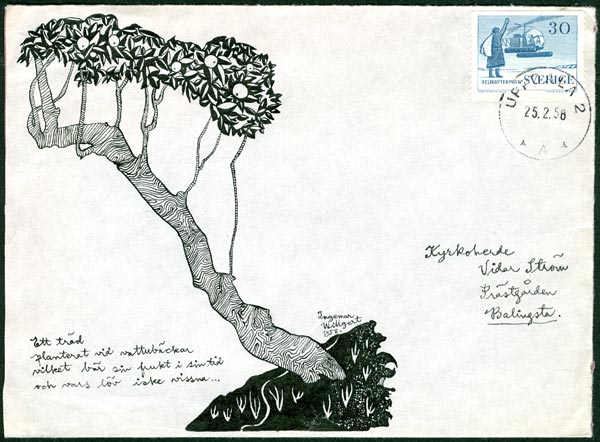 30
HELIKOPTERPOST SVERIGE
UPPSALA 2
25.2.58
A
Kyrkoherde
Vidar Ström
Prästgården
Balingsta.
Ingemar
Willgert
1958.
Ett träd
planterat vid vattubäckar
vilket bär sin frukt i sin tid
och vars löv icke vissna...